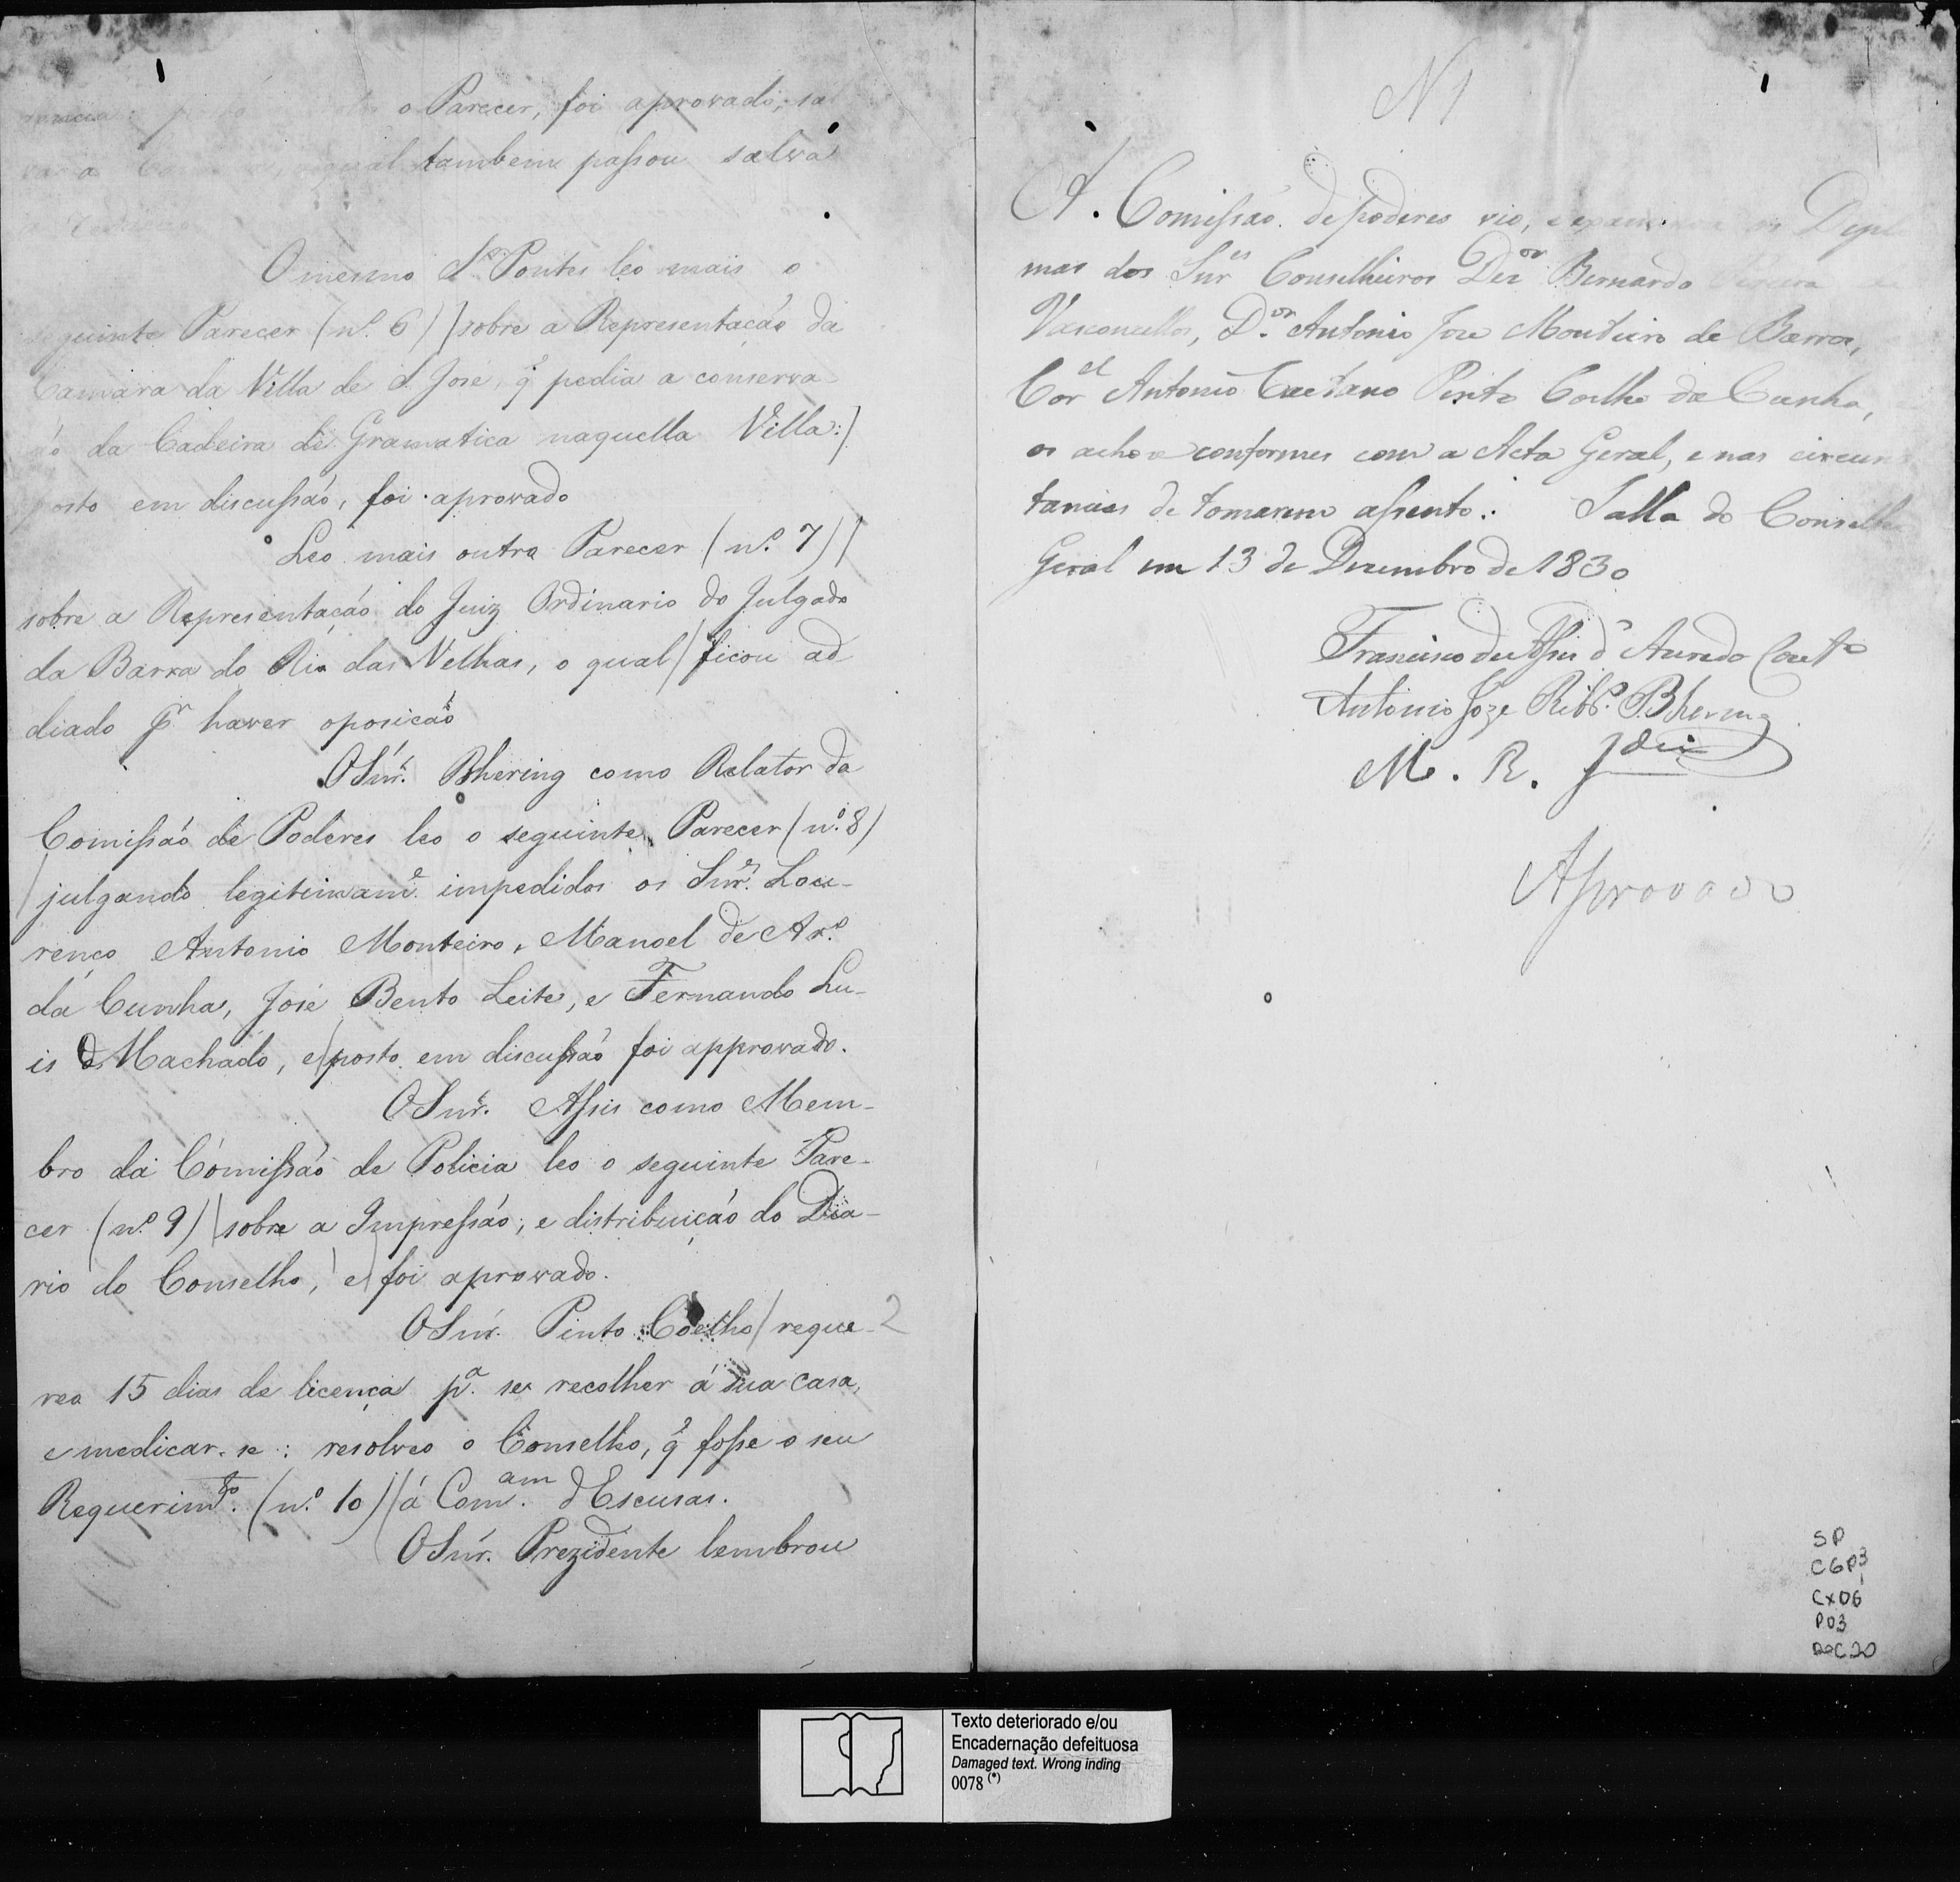 o Parecer, foi aprovado; sal
tambem passou salva
O mesmo Sr. Pontes leo mais o
seguinte Parecer (nº. 6) sobre a Representação da
Camara da Villa de S. José, q̃ pedia a conserva
ão da Cadeira de Gramatica naquella Villa:
posto em discussaõ, foi aprovado
Leo mais outro Parecer (nº. 7)
sobre a Representação do Juiz Ordinario do Julgado
da Barra do Rio das Velhas, o qual ficou ad
diado pr. haver oposicaõ
O Snr. Bhering como Relator da
Comissaõ de Poderes leo o seguinte Parecer (nº 8)
julgando legitimame. impedidos os Snres. Lou-
renço Antonio Monteiro, Manoel de Aro.
da Cunha, José Bento Leite, e Fernando Lu-
is Machado, e posto em discussaõ foi approvado.
O Snr. Assis como Mem-
bro da Comissaõ de Policia leo o seguinte Pare-
cer (nº 9) sobre a Impressaõ, e distribuiçaõ do Dia-
rio do Conselho, e foi aprovado.
O Snr. Pinto Coelho reque- 2
reo 15 dias de licença pa. se recolher á sua casa,
e medicar-se: resolveo o Conselho, q̃ fosse o seu
Requerimto. (nº. 10) á Comam. d'Escusas.
O Snr. Prezidente lembrou
N 1
A Comissaõ de poderes vio, e os Diplo
mas dos Snres Conselheiros Dezor Bernardo Pereira
Vasconcellos, Dor. Antonio Joze Monteiro de Barros,
Corel Antonio Caetano Pinto Coelho da Cunha,
os achou conformes com a Acta Geral, e nas circuns
tancias de tomarem assento. Salla do Conselho
Geral em 13 de Dezembro de 1830
Francisco de Assis d'Azeredo Couto
Antonio Joze Ribo. Bhering
M. R. Jdim
Aprovado
SP
CGP3
Cx06
P03
DOC.20
Texto deteriorado e/ou
Encadernação defeituosa
Damaged text. Wrong inding
0078 (*)